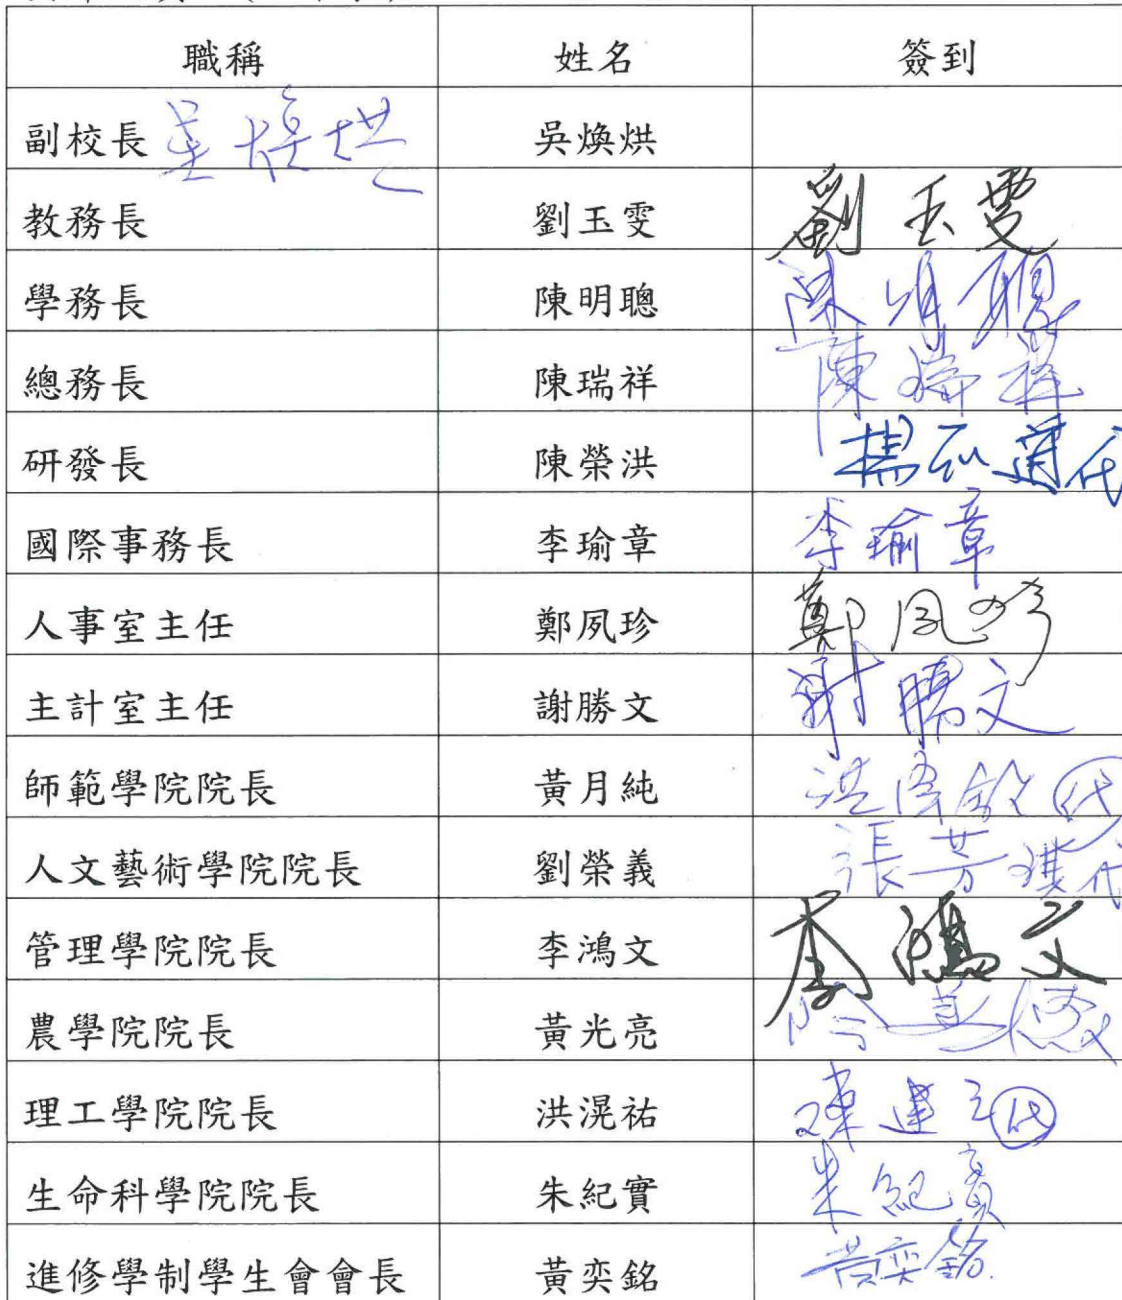 職稱 姓名 簽到
副校長 吳煥烘 吳煥烘
教務長 劉玉雯 劉玉雯
學務長 陳明聰 陳明聰
總務長 陳瑞祥 陳瑞祥
研發長 陳榮洪 代
國際事務長 李瑜章 李瑜章
人事室主任 鄭夙珍 鄭夙珍
主計室主任 謝勝文 謝勝文
師範學院院長 黃月純 代
人文藝術學院院長 劉榮義 張芳琪代
管理學院院長 李鴻文 李鴻文
農學院院長 黃光亮
理工學院院長 洪滉祐 陳建 代
生命科學院院長 朱紀實 朱紀實
進修學制學生會會長 黃奕銘 黃奕銘